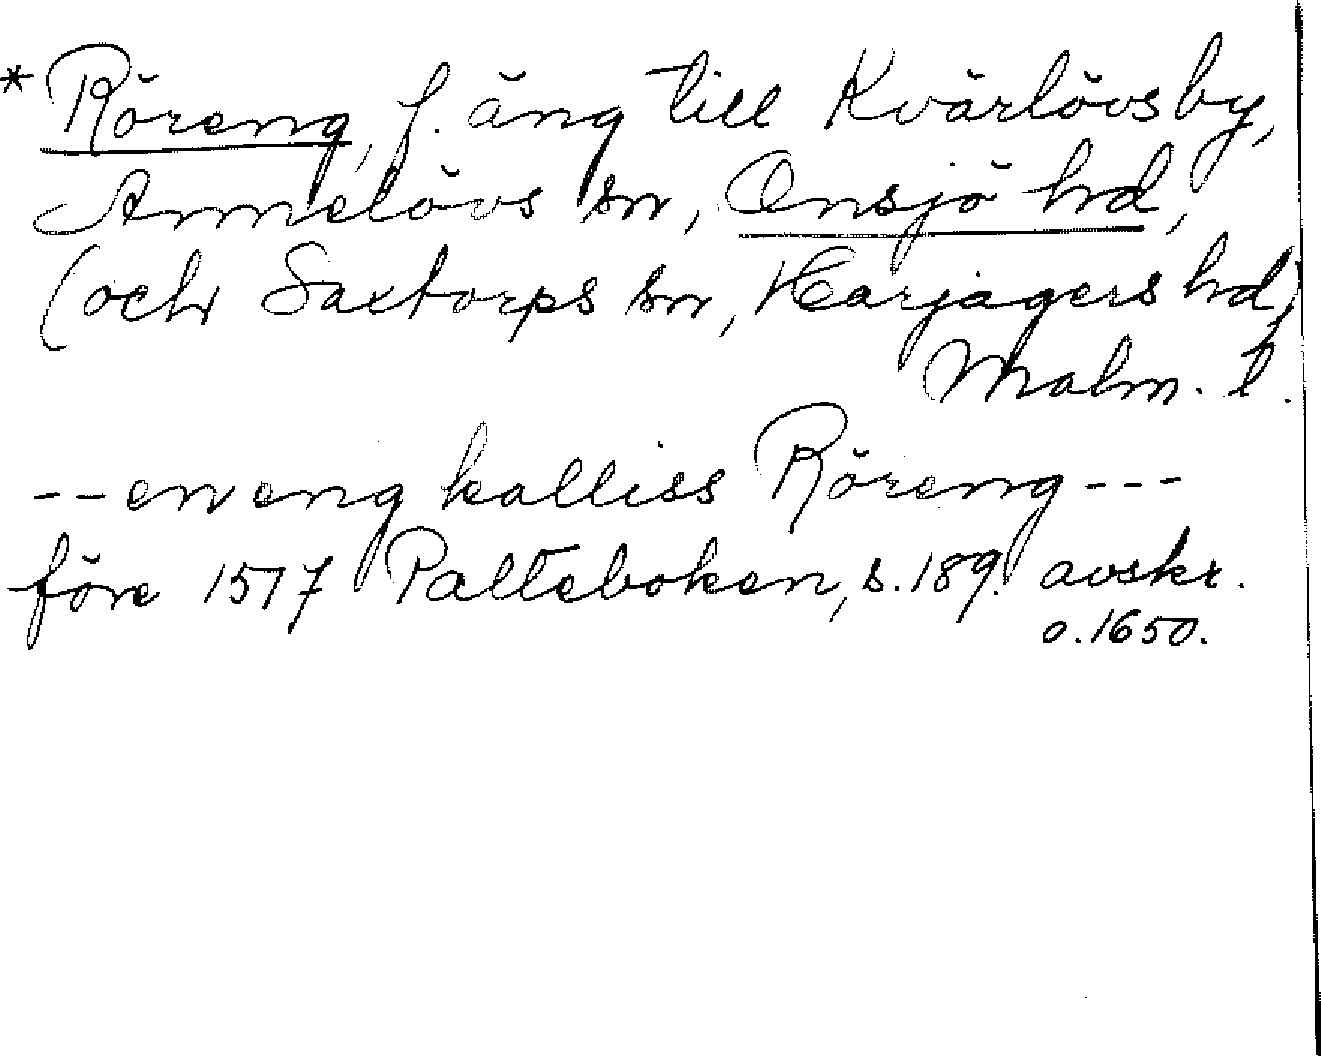 * Röreng, f. äng till Kvärlövs by,
Annelövs sn, Onsjö hd,
(och Saxtorps sn, Harjagers hd)
Malm. l.
-- en eng kalliss Röreng ---
före 1517 Palteboken, s. 189. avskr.
o. 1650.